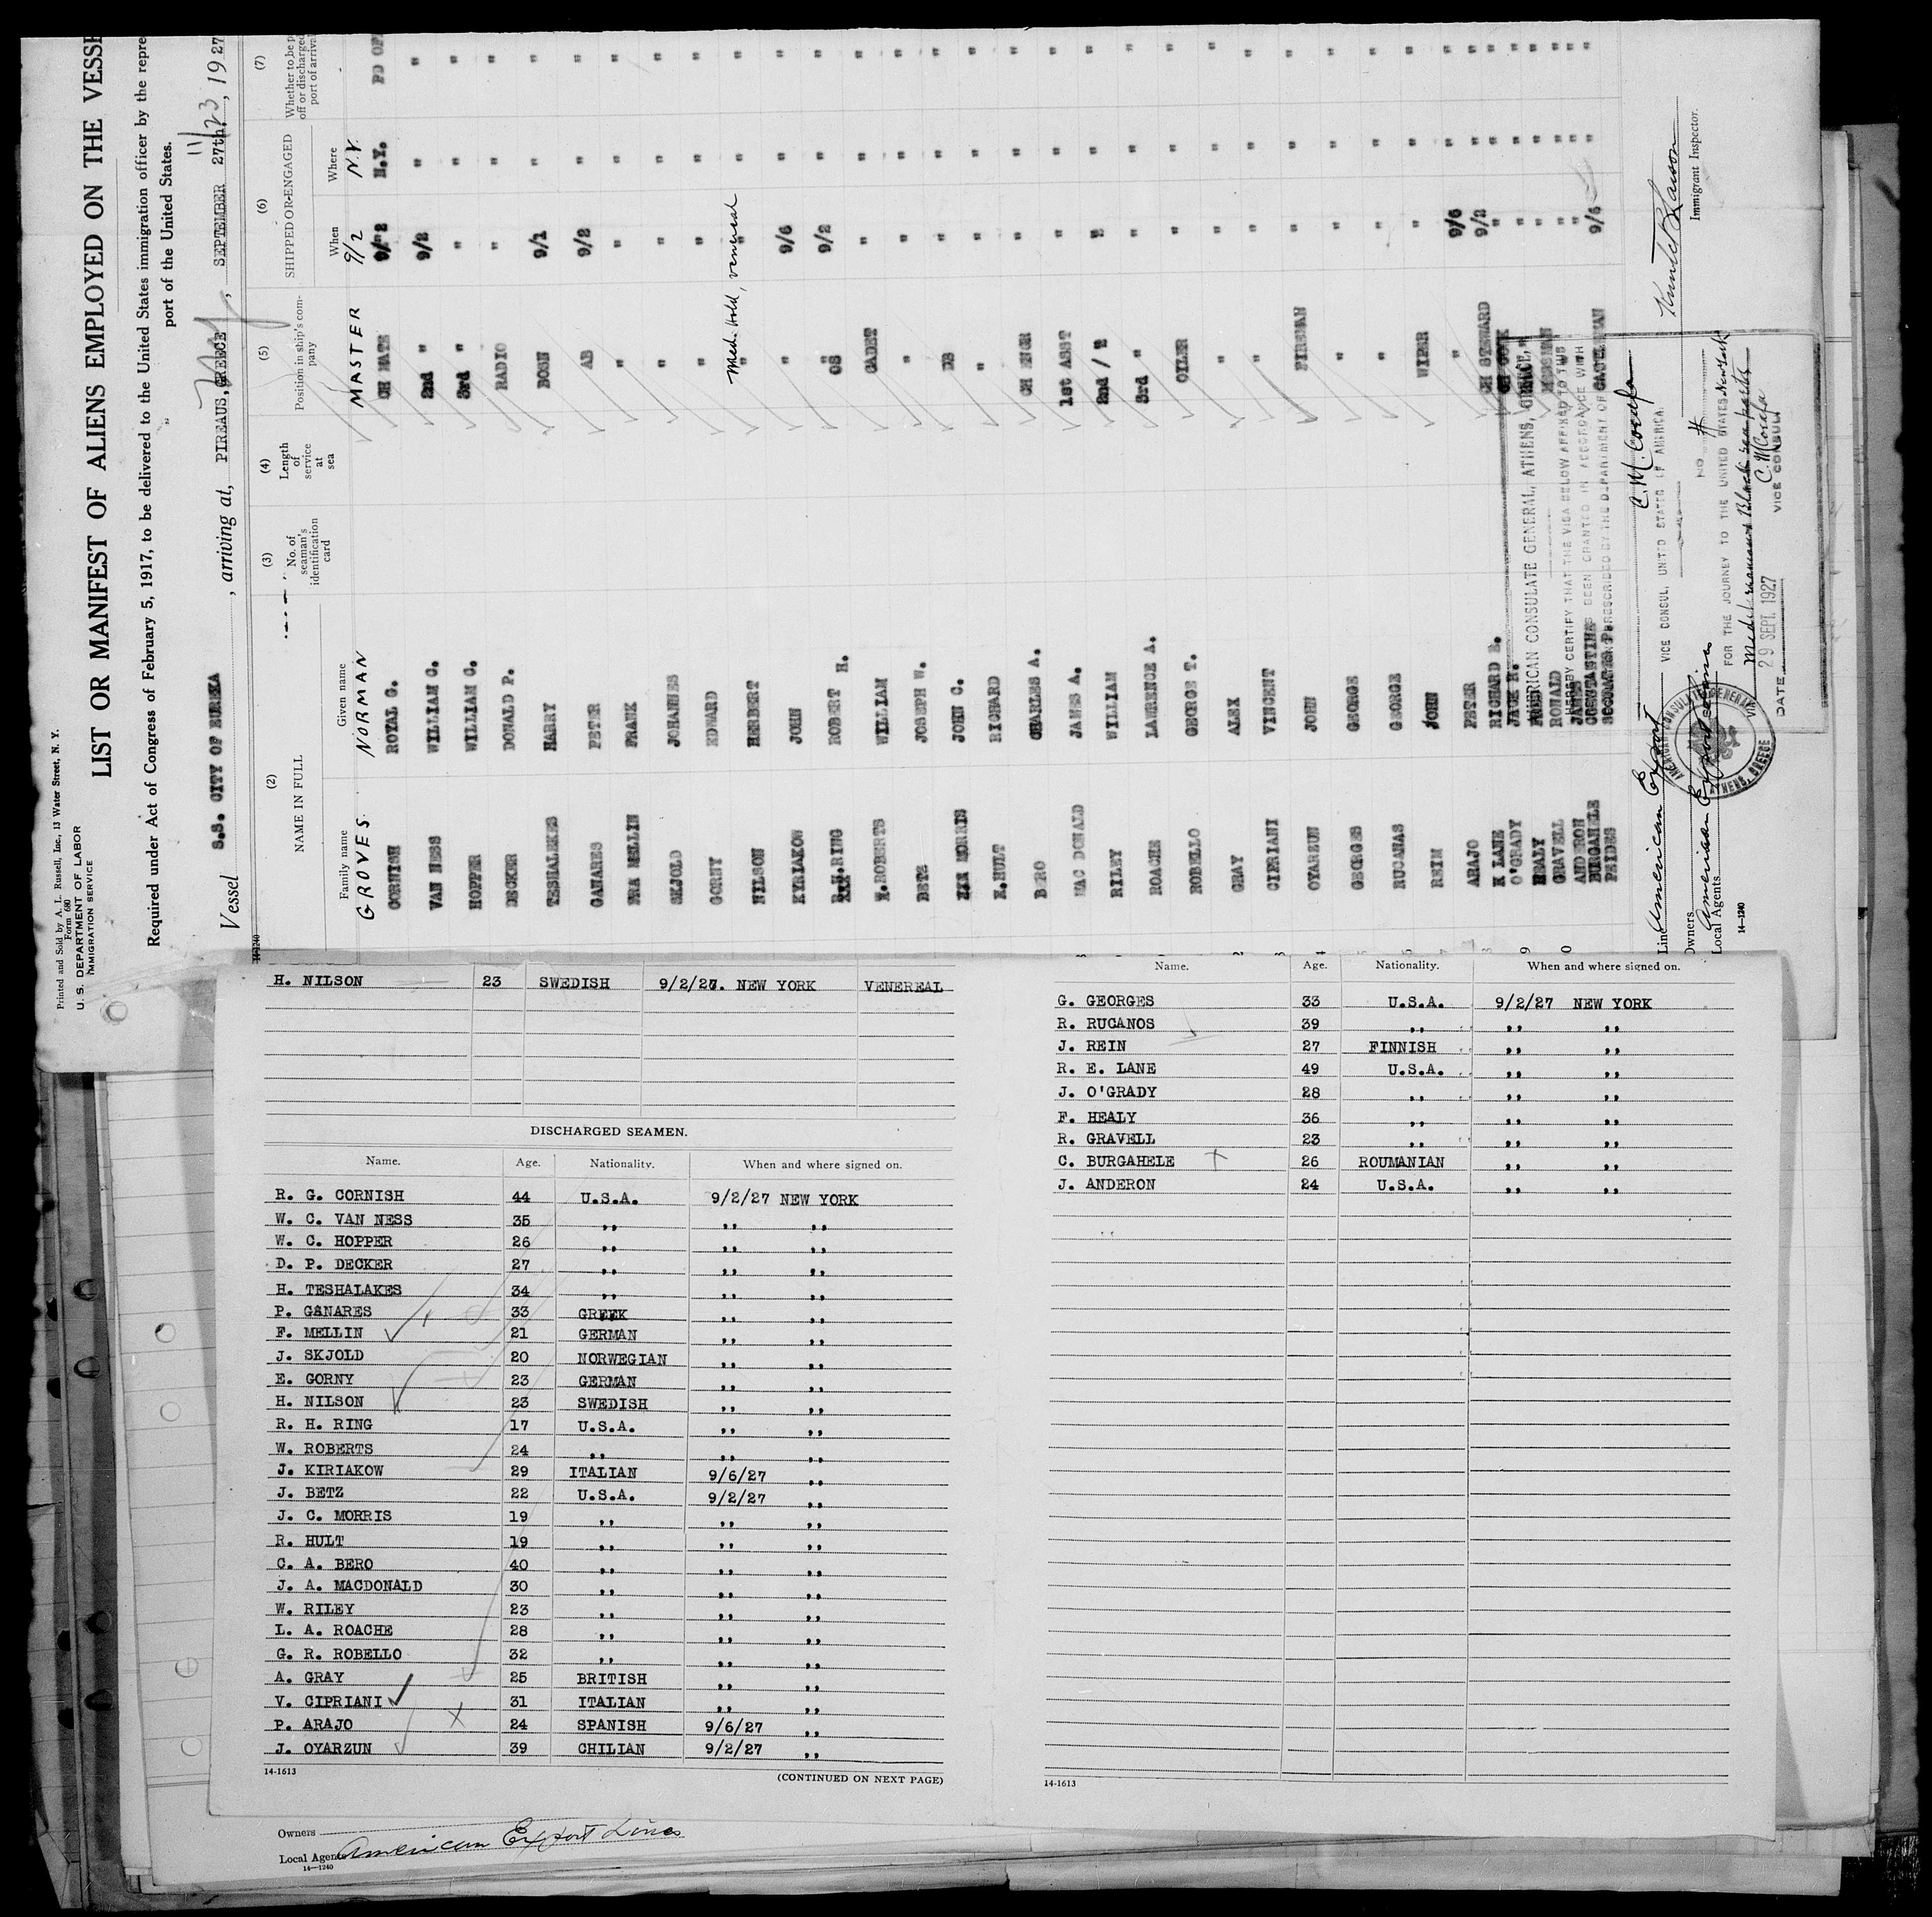 Printed and Sold by A. L. Russell, Inc., 13 Water Street, N. Y.
Form 680
U. S. DEPARTMENT OF LABOR
IMMIGRATION SERVICE
LIST OR MANIFEST OF ALIENS EMPLOYED ON THE VESSE
Required under Act of Congress of February 5, 1917, to be delivered to the United States immigration officer by the repre
port of the United States.
11/23
Vessel S.S. CITY OF EUREKA, arriving at, PIRAEUS, GREECE, SEPTEMBER 27th, 1927
(2) (3) (4) (5) (6) (7)
NAME IN FULL
No. of seaman's identification card
Length of service at sea
Position in ship's company
SHIPPED OR ENGAGED
Whether to be p
off or discharged
port of arrival
Family name Given name When Where
GROVES NORMAN MASTER 9/2 N.Y.
CORNISH ROYAL G. CH MATE 9/2 N.Y. PD OF
VAN NESS WILLIAM C. 2nd " 9/2 " "
HOPPER WILLIAM C. 3rd " " " "
DECKER DONALD P. RADIO " " "
TESHALEKES HARRY BOSN 9/1 " "
GANARES PETER AB 9/2 " "
FRA MELLIN FRANK " " " "
SKJOLD JOHANNES " " " "
GORNY EDWARD " " " "
NILSON HERBERT " " " " Med. Hold, venereal
KYRIAKOW JOHN " 9/6 " "
R.H.RING ROBERT H. OS 9/2 " "
W.ROBERTS WILLIAM CADET " " "
BETZ JOSEPH W. " " " "
MORRIS JOHN C. DB " " "
R.HULT RICHARD " " " "
BERO CHARLES A. CH ENGR " " "
MAC DONALD JAMES A. 1st ASST " " "
RILEY WILLIAM 2nd / 2 " " "
ROACHE LAWRENCE A. 3rd " " " "
ROBELLO GEORGE T. OILER " " "
GRAY ALEX " " " "
CIPRIANI VINCENT " " " "
OYARZUN JOHN FIREMAN " " "
GEORGES GEORGE " " " "
RUCANAS GEORGE " " " "
REIM JOHN WIPER " " "
ARAJO PETER " 9/6 " "
R LANE RICHARD E. CH STEWARD 9/2 " "
O'GRADY JACK H. CH COOK " " "
HEALY " " "
GRAVELL RONALD MESSMAN " " "
ANDERON JAMES " " "
BURGAHELE CONSTANTINE " "
PSIDES SOCRATES P. 9/6 "
AMERICAN CONSULATE GENERAL, ATHENS, GREECE,
HEREBY CERTIFY THAT THE VISA BELOW AFFIXED TO THIS
BEEN GRANTED IN ACCORDANCE WITH
PRESCRIBED BY THE DEPARTMENT OF
VICE CONSUL, UNITED STATES OF AMERICA.
NO. #
FOR THE JOURNEY TO THE UNITED STATES New York
Mediterranean & Black sea ports
29 SEPT. 1927
DATE
VICE CONSUL
AMERICAN CONSULATE GENERAL
ATHENS, GREECE
Immigrant Inspector.
Line American Export
Owners
Local Agents American Export Lines
14—1240
H. NILSON 23 SWEDISH 9/2/27. NEW YORK VENEREAL
DISCHARGED SEAMEN.
Name. Age. Nationality. When and where signed on.
R. G. CORNISH 44 U.S.A. 9/2/27 NEW YORK
W. C. VAN NESS 35 ,, ,, ,,
W. C. HOPPER 26 ,, ,, ,,
D. P. DECKER 27 ,, ,, ,,
H. TESHALAKES 34 ,, ,, ,,
P. GANARES 33 GREEK ,, ,,
F. MELLIN 21 GERMAN ,, ,,
J. SKJOLD 20 NORWEGIAN ,, ,,
E. GORNY 23 GERMAN ,, ,,
H. NILSON 23 SWEDISH ,, ,,
R. H. RING 17 U.S.A. ,, ,,
W. ROBERTS 24 ,, ,, ,,
J. KIRIAKOW 29 ITALIAN 9/6/27 ,,
J. BETZ 22 U.S.A. 9/2/27 ,,
J. C. MORRIS 19 ,, ,, ,,
R. HULT 19 ,, ,, ,,
C. A. BERO 40 ,, ,, ,,
J. A. MACDONALD 30 ,, ,, ,,
W. RILEY 23 ,, ,, ,,
L. A. ROACHE 28 ,, ,, ,,
G. R. ROBELLO 32 ,, ,, ,,
A. GRAY 25 BRITISH ,, ,,
V. CIPRIANI 31 ITALIAN ,, ,,
P. ARAJO 24 SPANISH 9/6/27 ,,
J. OYARZUN 39 CHILIAN 9/2/27 ,,
14-1613 (CONTINUED ON NEXT PAGE)
Name. Age. Nationality. When and where signed on.
G. GEORGES 33 U.S.A. 9/2/27 NEW YORK
R. RUCANOS 39 ,, ,, ,,
J. REIN 27 FINNISH ,, ,,
R. E. LANE 49 U.S.A. ,, ,,
J. O'GRADY 28 ,, ,, ,,
F. HEALY 36 ,, ,, ,,
R. GRAVELL 23 ,, ,, ,,
C. BURGAHELE 26 ROUMANIAN ,, ,,
J. ANDERON 24 U.S.A. ,, ,,
14-1613
Owners
Local Agents American Export Lines
14—1240